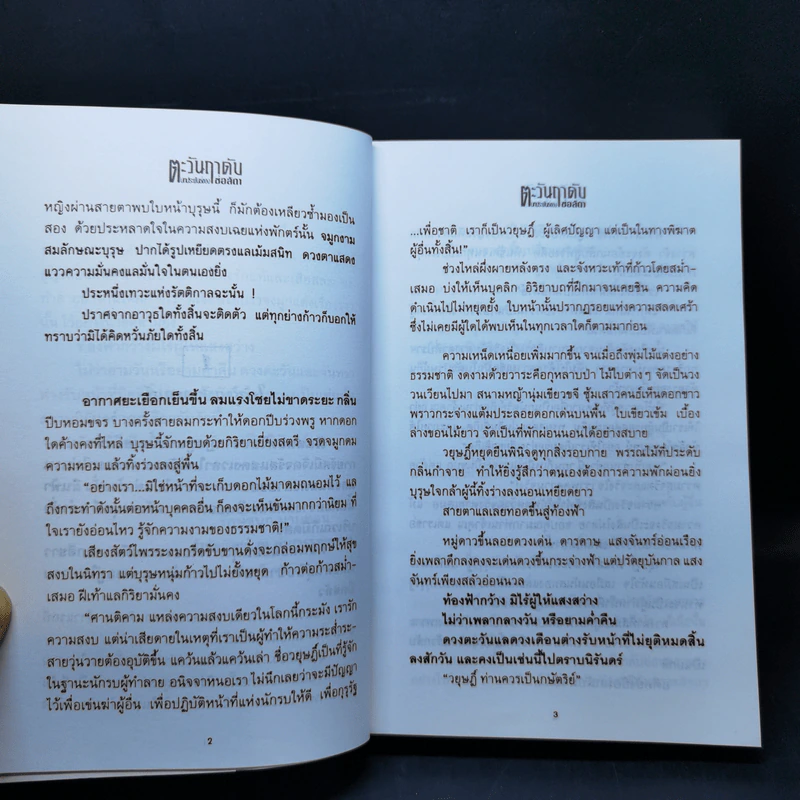 ตะวันฤาดับ
หญิงผ่านสายตาพบใบหน้าบุรุษนี้ ก็มักต้องเหลียวซ้ำมองเป็น
สอง ด้วยประหลาดใจในความสงบเฉยแห่งพักตร์นั้น จมูกงาม
สมลักษณะบุรุษ ปากได้รูปเหยียดตรงแลเม้มสนิท ดวงตาแสดง
แววความมั่นคงแลมั่นใจในตนเองยิ่ง
ประหนึ่งเทวะแห่งรัตติกาลฉะนั้น !
ปราศจากอาวุธใดทั้งสิ้นจะติดตัว แต่ทุกย่างก้าวก็บอกให้
ทราบว่ามิได้คิดหวั่นภัยใดทั้งสิ้น
อากาศยะเยือกเย็นขึ้น ลมแรงโชยไม่ขาดระยะ กลิ่น
ปีบหอมขจร บางครั้งสายลมกระทำให้ดอกปีบร่วงพรู หากดอก
ใดค้างคงที่ไหล่ บุรุษนี้จักหยิบด้วยกิริยาเยี่ยงสตรี จรดจมูกดม
ความหอม แล้วทิ้งร่วงลงสู่พื้น
“อย่างเรา...มิใช่หน้าที่จะเก็บดอกไม้มาดมถนอมไว้ แล
ถึงกระทำดังนั้นต่อหน้าบุคคลอื่น ก็คงจะเห็นขันมากกว่านิยม ที่
ใจเรายังอ่อนไหว รู้จักความงามของธรรมชาติ!”
เสียงสัตว์ไพรระงมกรีดขับขานดั่งจะกล่อมพฤกษ์ให้สุข
สงบในนิทรา แต่บุรุษหนุ่มก้าวไปไม่ยั้งหยุด ก้าวต่อก้าวสม่ำ-
เสมอ ฝีเท้าแลกิริยามั่นคง
“ศานติคาม แหล่งความสงบเดียวในโลกนี้กระมัง เรารัก
ความสงบ แต่น่าเสียดายในเหตุที่เราเป็นผู้ทำให้ความระส่ำระ-
สายวุ่นวายต้องอุบัติขึ้น แคว้นแล้วแคว้นเล่า ชื่อวยุษฎิ์เป็นที่รู้จัก
ในฐานะนักรบผู้ทำลาย อนิจจาหนอเรา ไม่นึกเลยว่าจะมีปัญญา
ไว้เพื่อเข่นฆ่าผู้อื่น เพื่อปฏิบัติหน้าที่แห่งนักรบให้ดี เพื่อกุรุรัฐ
2
ตะวันฤาดับ
...เพื่อชาติ เราก็เป็นวยุษฎิ์ ผู้เลิศปัญญา แต่เป็นในทางพิฆาต
ผู้อื่นทั้งสิ้น!”
ช่วงไหล่ผึ่งผายหลังตรง และจังหวะเท้าที่ก้าวโดยสม่ำ-
เสมอ บ่งให้เห็นบุคลิก อิริยาบถที่ฝึกมาจนเคยชิน ความคิด
ดำเนินไปไม่หยุดยั้ง ใบหน้านั้นปรากฏรอยแห่งความสลดเศร้า
ซึ่งไม่เคยมีผู้ใดได้พบเห็นในทุกเวลาใดก็ตามมาก่อน
ความเหนื่อยเหนื่อยเพิ่มมากขึ้น จนเมื่อถึงพุ่มไม้แต่งอย่าง
ธรรมชาติ งดงามด้วยวาระคือกุหลาบป่า ไม้ใบต่างๆ จัดเป็นวง
วนเวียนไปมา สนามหญ้านุ่มเขียวขจี ซุ้มเสาวคนธ์เห็นดอกขาว
พราวกระจ่างแต้มประลอยดอกเด่นบนพื้น ใบเขียวเข้ม เบื้อง
ล่างขอนไม้ยาว จัดเป็นที่พักผ่อนนอนได้อย่างสบาย
วยุษฎิ์หยุดยืนพินิจดูทุกสิ่งรอบกาย พรรณไม้ที่ประดับ
กลิ่นกำจาย ทำให้ยิ่งรู้สึกว่าตนเองต้องการความพักผ่อนยิ่ง
บุรุษใจกล้าผู้นี้ทิ้งร่างลงนอนเหยียดยาว
สายตาแลเลยทอดขึ้นสู่ท้องฟ้า
หมู่ดาวขึ้นลอยดวงเด่น ดารดาษ แสงจันทร์อ่อนเรือง
ยิ่งเพลาดึกลงคงจะเด่นดวงขึ้นกระจ่างฟ้า แต่ปรัตยุบันกาล แสง
จันทร์เพียงสลัวอ่อนนวล
ท้องฟ้ากว้าง มิไร้ผู้ให้แสงสว่าง
ไม่ว่าเพลากลางวัน หรือยามค่ำคืน
ดวงตะวันแลดวงเดือนต่างรับหน้าที่ไม่ยุติหมดสิ้น
ลงสักวัน และคงเป็นเช่นนี้ไปตราบนิรันดร์
“วยุษฎิ์ ท่านควรเป็นกษัตริย์”
3